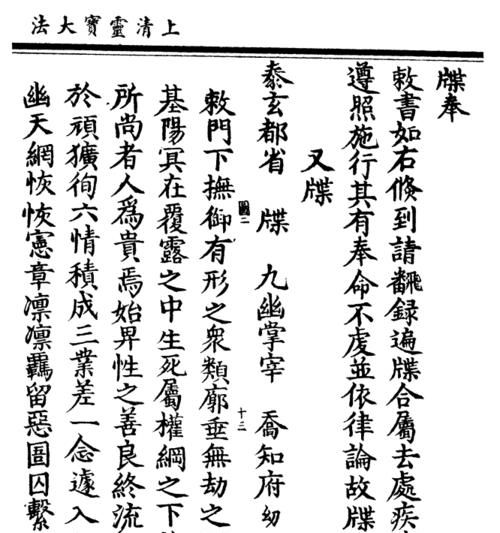 上清靈寶大法
牒奉
敕書如右倏到請翻錄遍牒合屬去處疾
遵照施行其有奉命不虔並依律論故牒
又牒
泰玄都省　牒　九幽掌宰　喬知府幼
敕門下撫御有形之衆類廓垂無劫之
基陽冥在覆露之中生死屬權綱之下
所尚者人爲貴焉始畀性之善良終流
於頑獷徇六情積成三業差一念遽入
幽天網恢恢憲章凛凛羈留惡圄囚繫